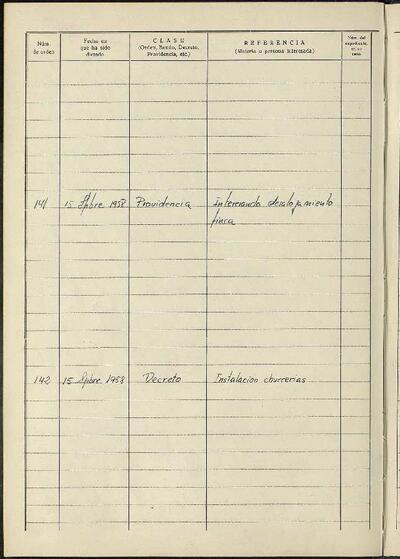 Núm. de orden
Fecha en que ha sido dictado
CLASE
(Orden, Bando, Decreto, Providencia, etc.)
REFERENCIA
(Materia o persona interesada)
Núm. del expediente, en su caso
141 15 Spbre 1958 Providencia Interesando desalojamiento
finca
142 15 Spbre. 1958 Decreto Instalacion churrerias